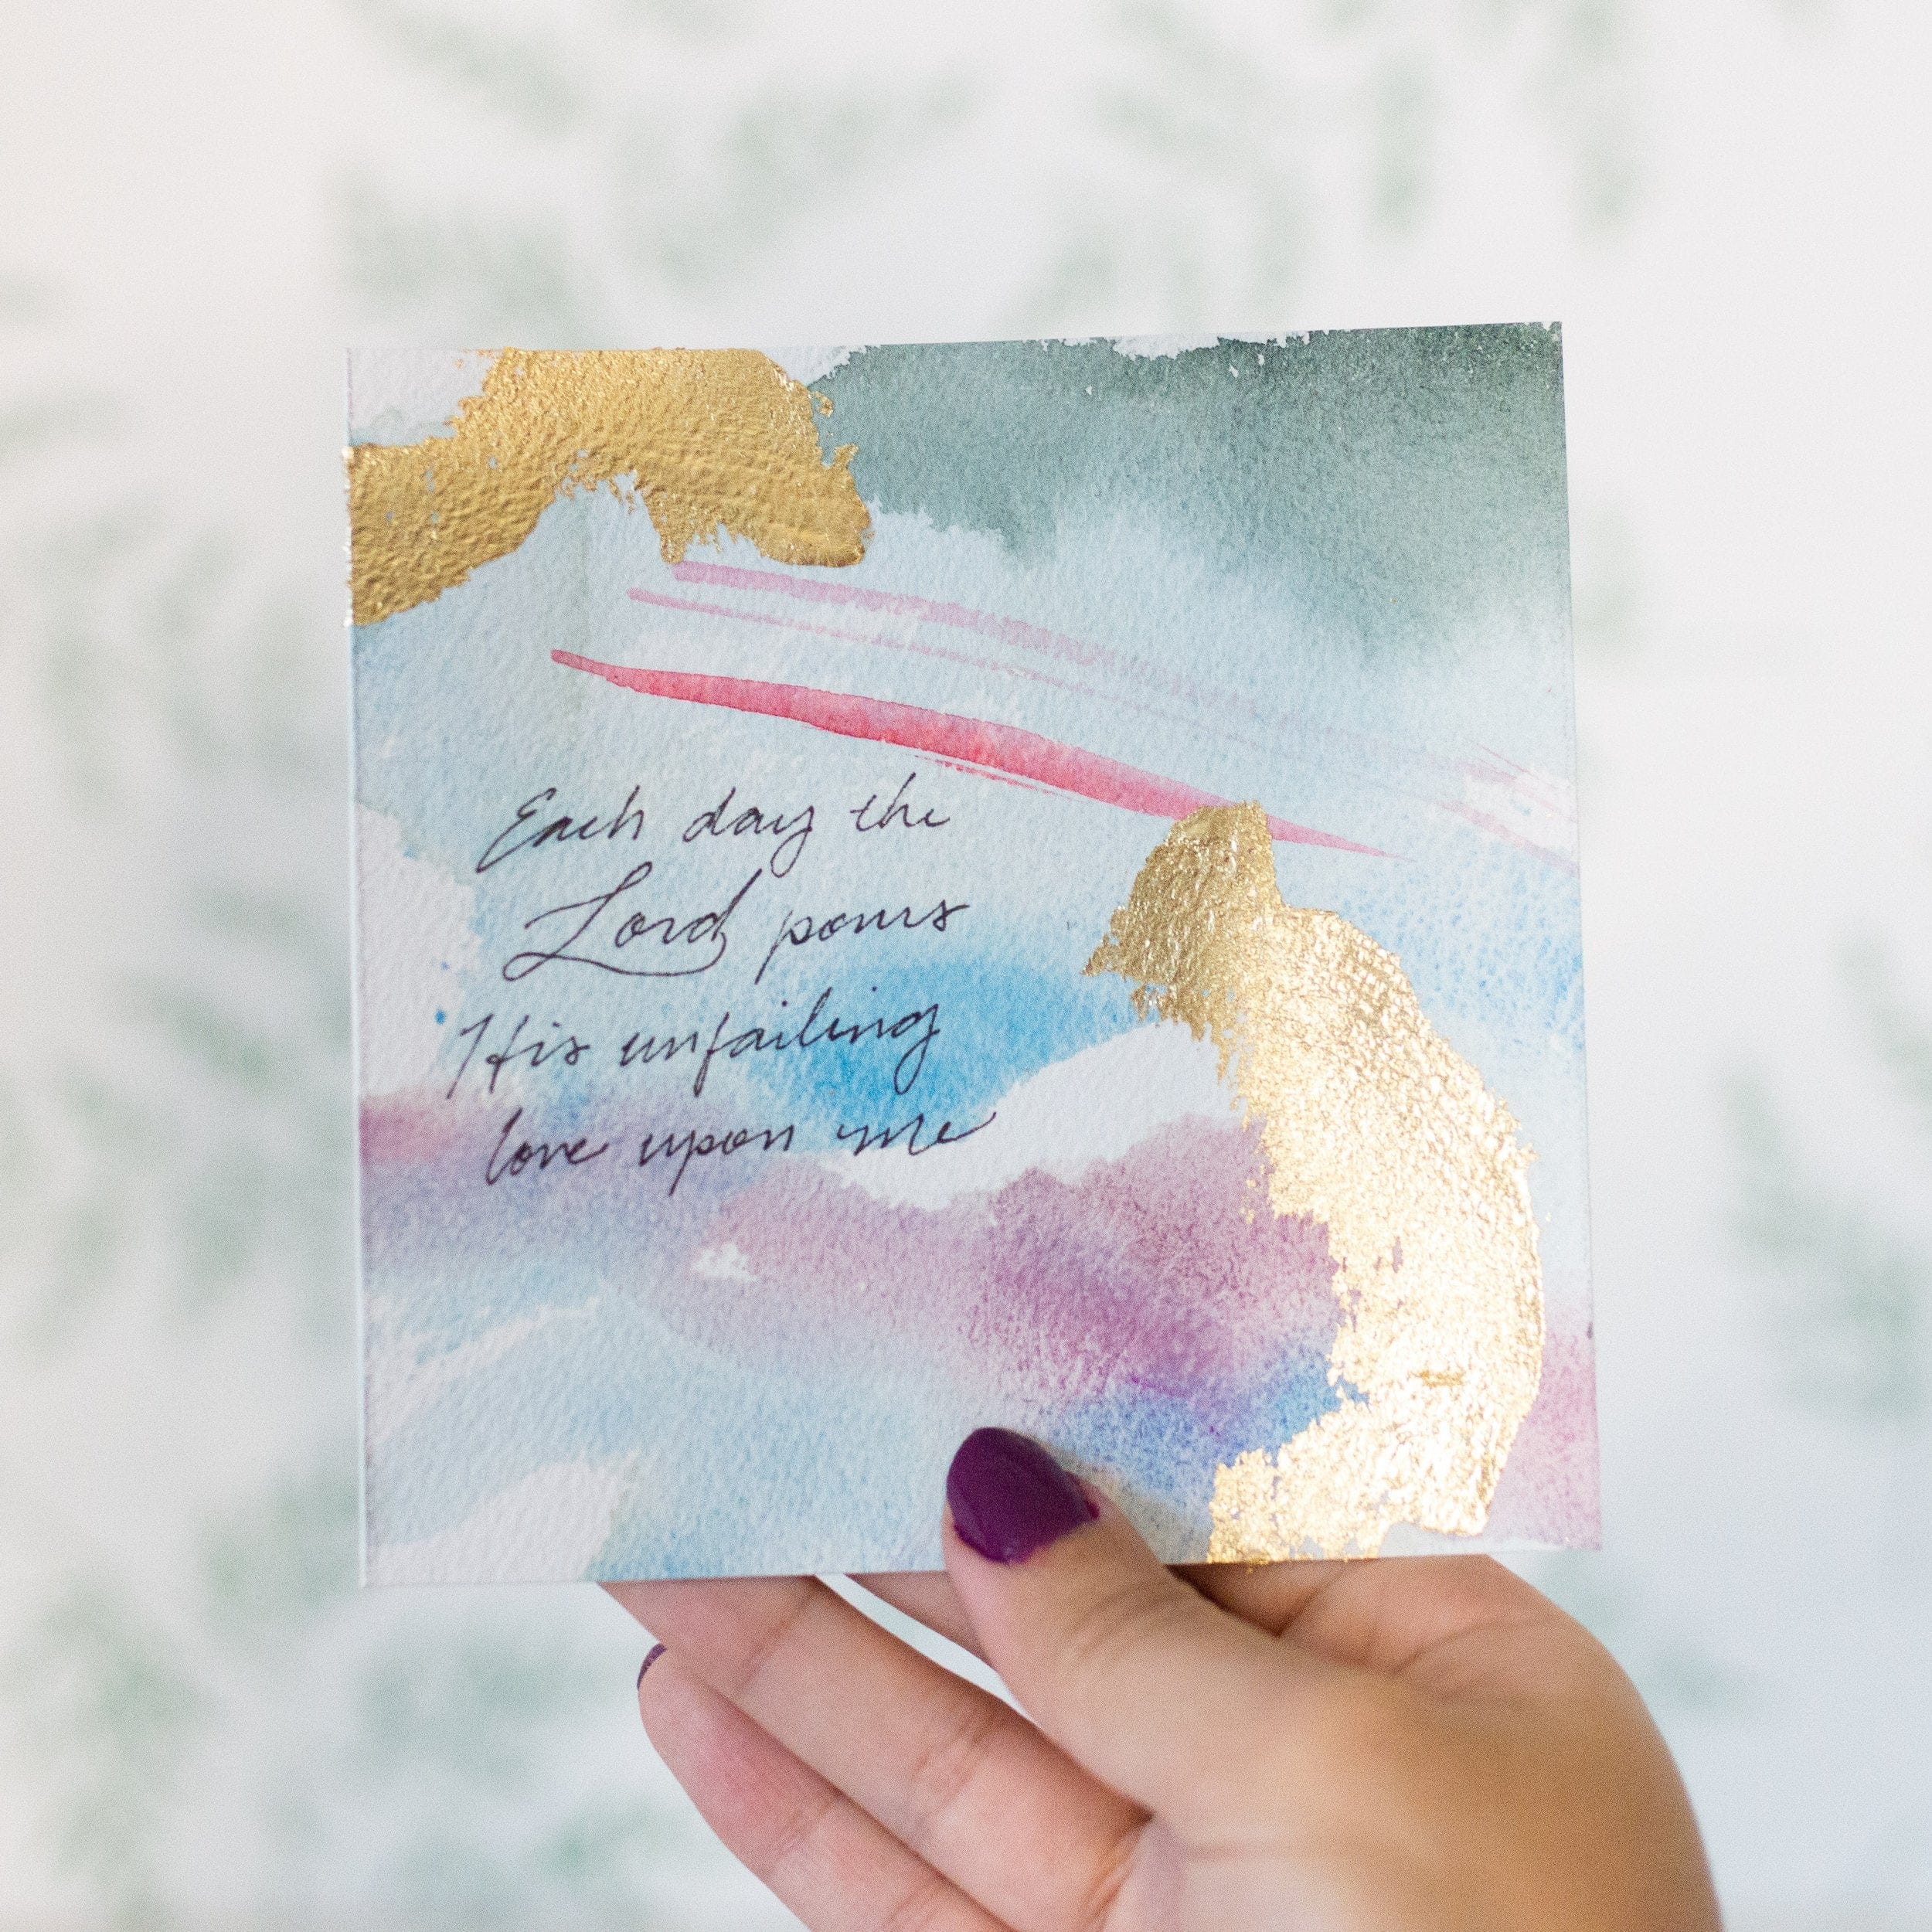 Each day the
Lord pours
His unfailing
love upon me